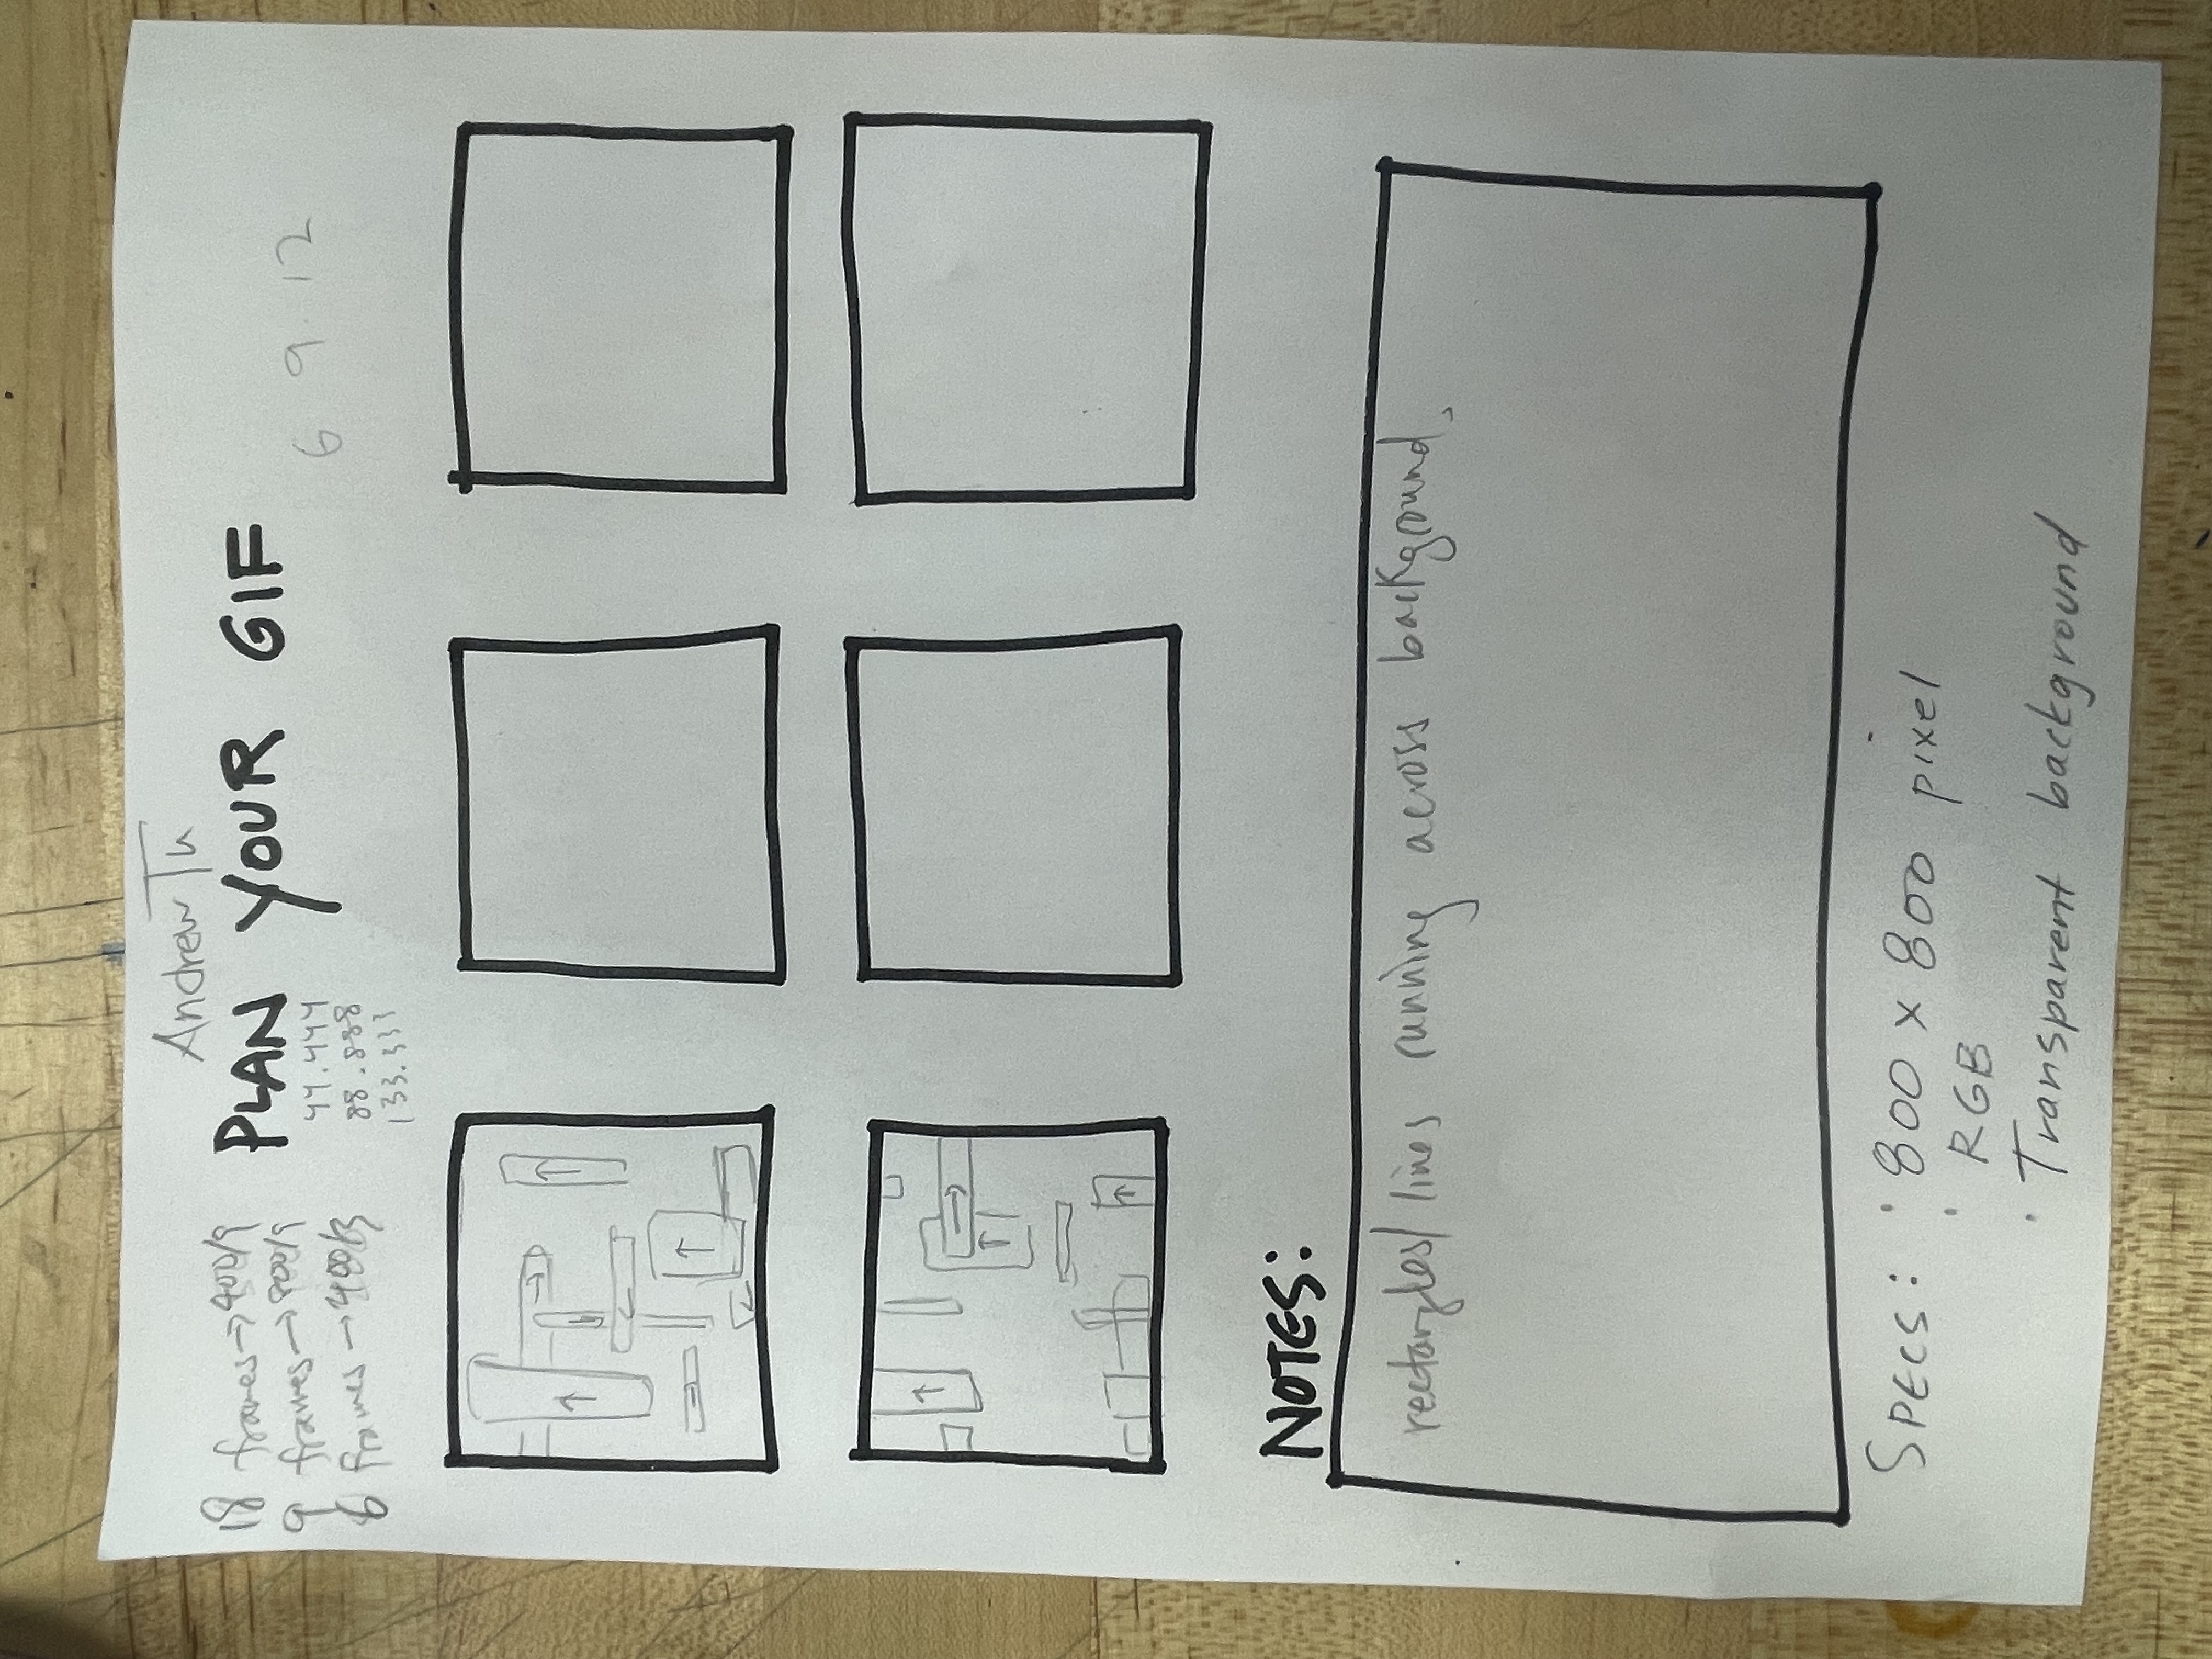 Andrew Tu
18 frames → 400/9
9 frames → 800/9
6 frames → 400/3
PLAN YOUR GIF
44.444
88.888
133.333
6 9 12
NOTES:
rectangles/lines running across background.
SPECS: · 800 x 800 pixel
· RGB
· Transparent background